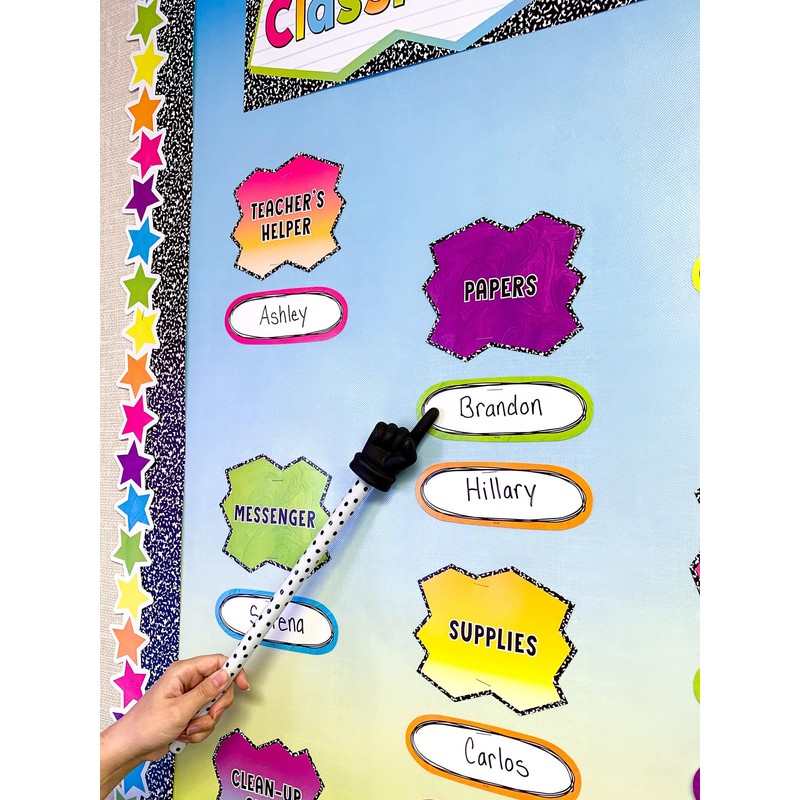 TEACHER'S
HELPER
Ashley
PAPERS
Brandon
Hillary
MESSENGER
SUPPLIES
Carlos
CLEAN-UP